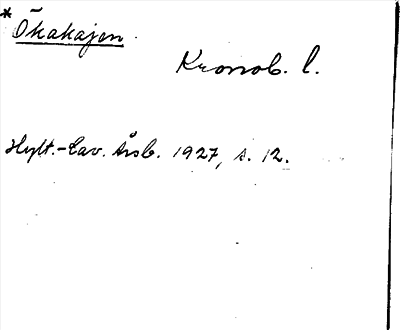 *
Ökakajen.
Kronob. l.
Hylt.-Cav. Årsb. 1927, s. 12.